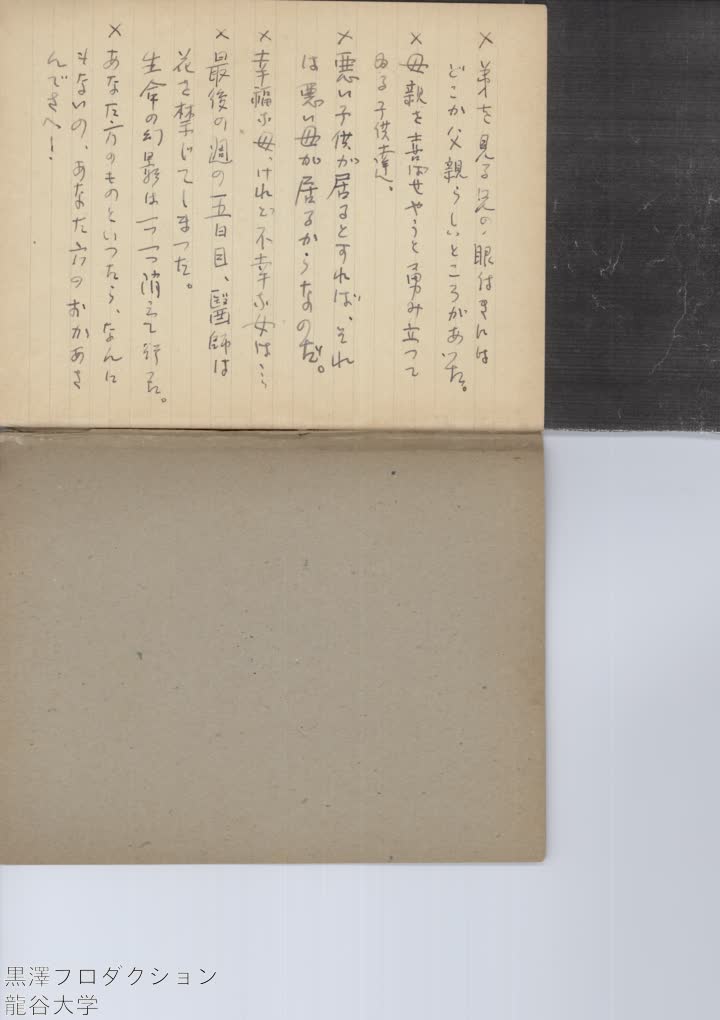 × 弟を見る兄の眼はきには
どこか父親らしいところがあった。
× 母親を喜ばせやうと勇み立って
ゐる子供達。
× 悪い子供が居るとすれば、それ
は悪い母が居るからなのだ。
× 幸福な母、けれど不幸な女は
× 最後の週の五日目、醫師は
花を禁じてしまつた。
生命の幻影は一つ一つ消えて行つた。
× あなた方のものといつたら、なんに
もないの、あなた方のおかあさ
んでさへ!
黒澤プロダクション
龍谷大学